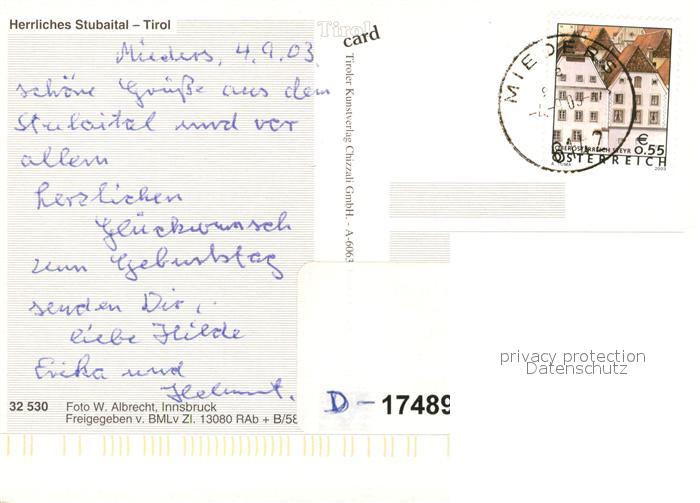 Herrliches Stubaital – Tirol
Tirol
card
Mieders, 4.9.03
schöne Grüße aus dem
Stubaital und vor
allem
herzlichen
Glückwunsch
zum Geburtstag
senden Dir,
liebe Hilde
Erika und
Helmut.
32 530 Foto W. Albrecht, Innsbruck
Freigegeben v. BMLv Zl. 13080 RAb + B/58
Tiroler Kunstverlag Chizzali GmbH. - A-6063
MIEDERS
OBERÖSTERREICH STEYR
€ 0.55
ÖSTERREICH
2003
D - 17489
privacy protection
Datenschutz